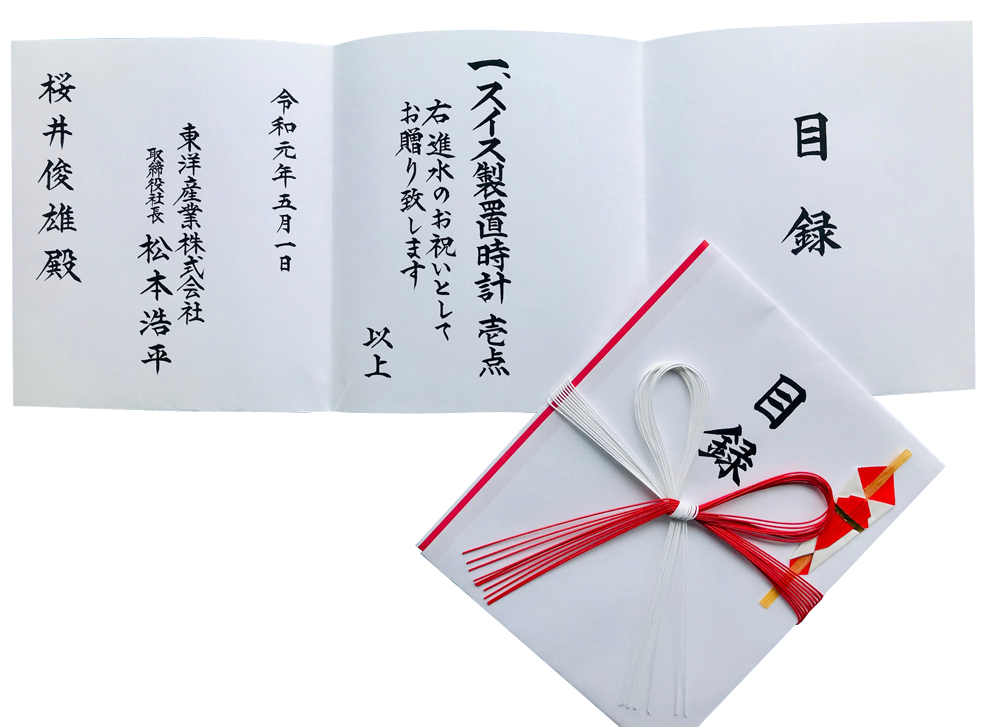 目録
一、スイス製置時計 壱点
右進水のお祝いとして
お贈り致します
以上
令和元年五月一日
東洋産業株式会社
取締役社長 松本浩平
桜井俊雄殿
目録